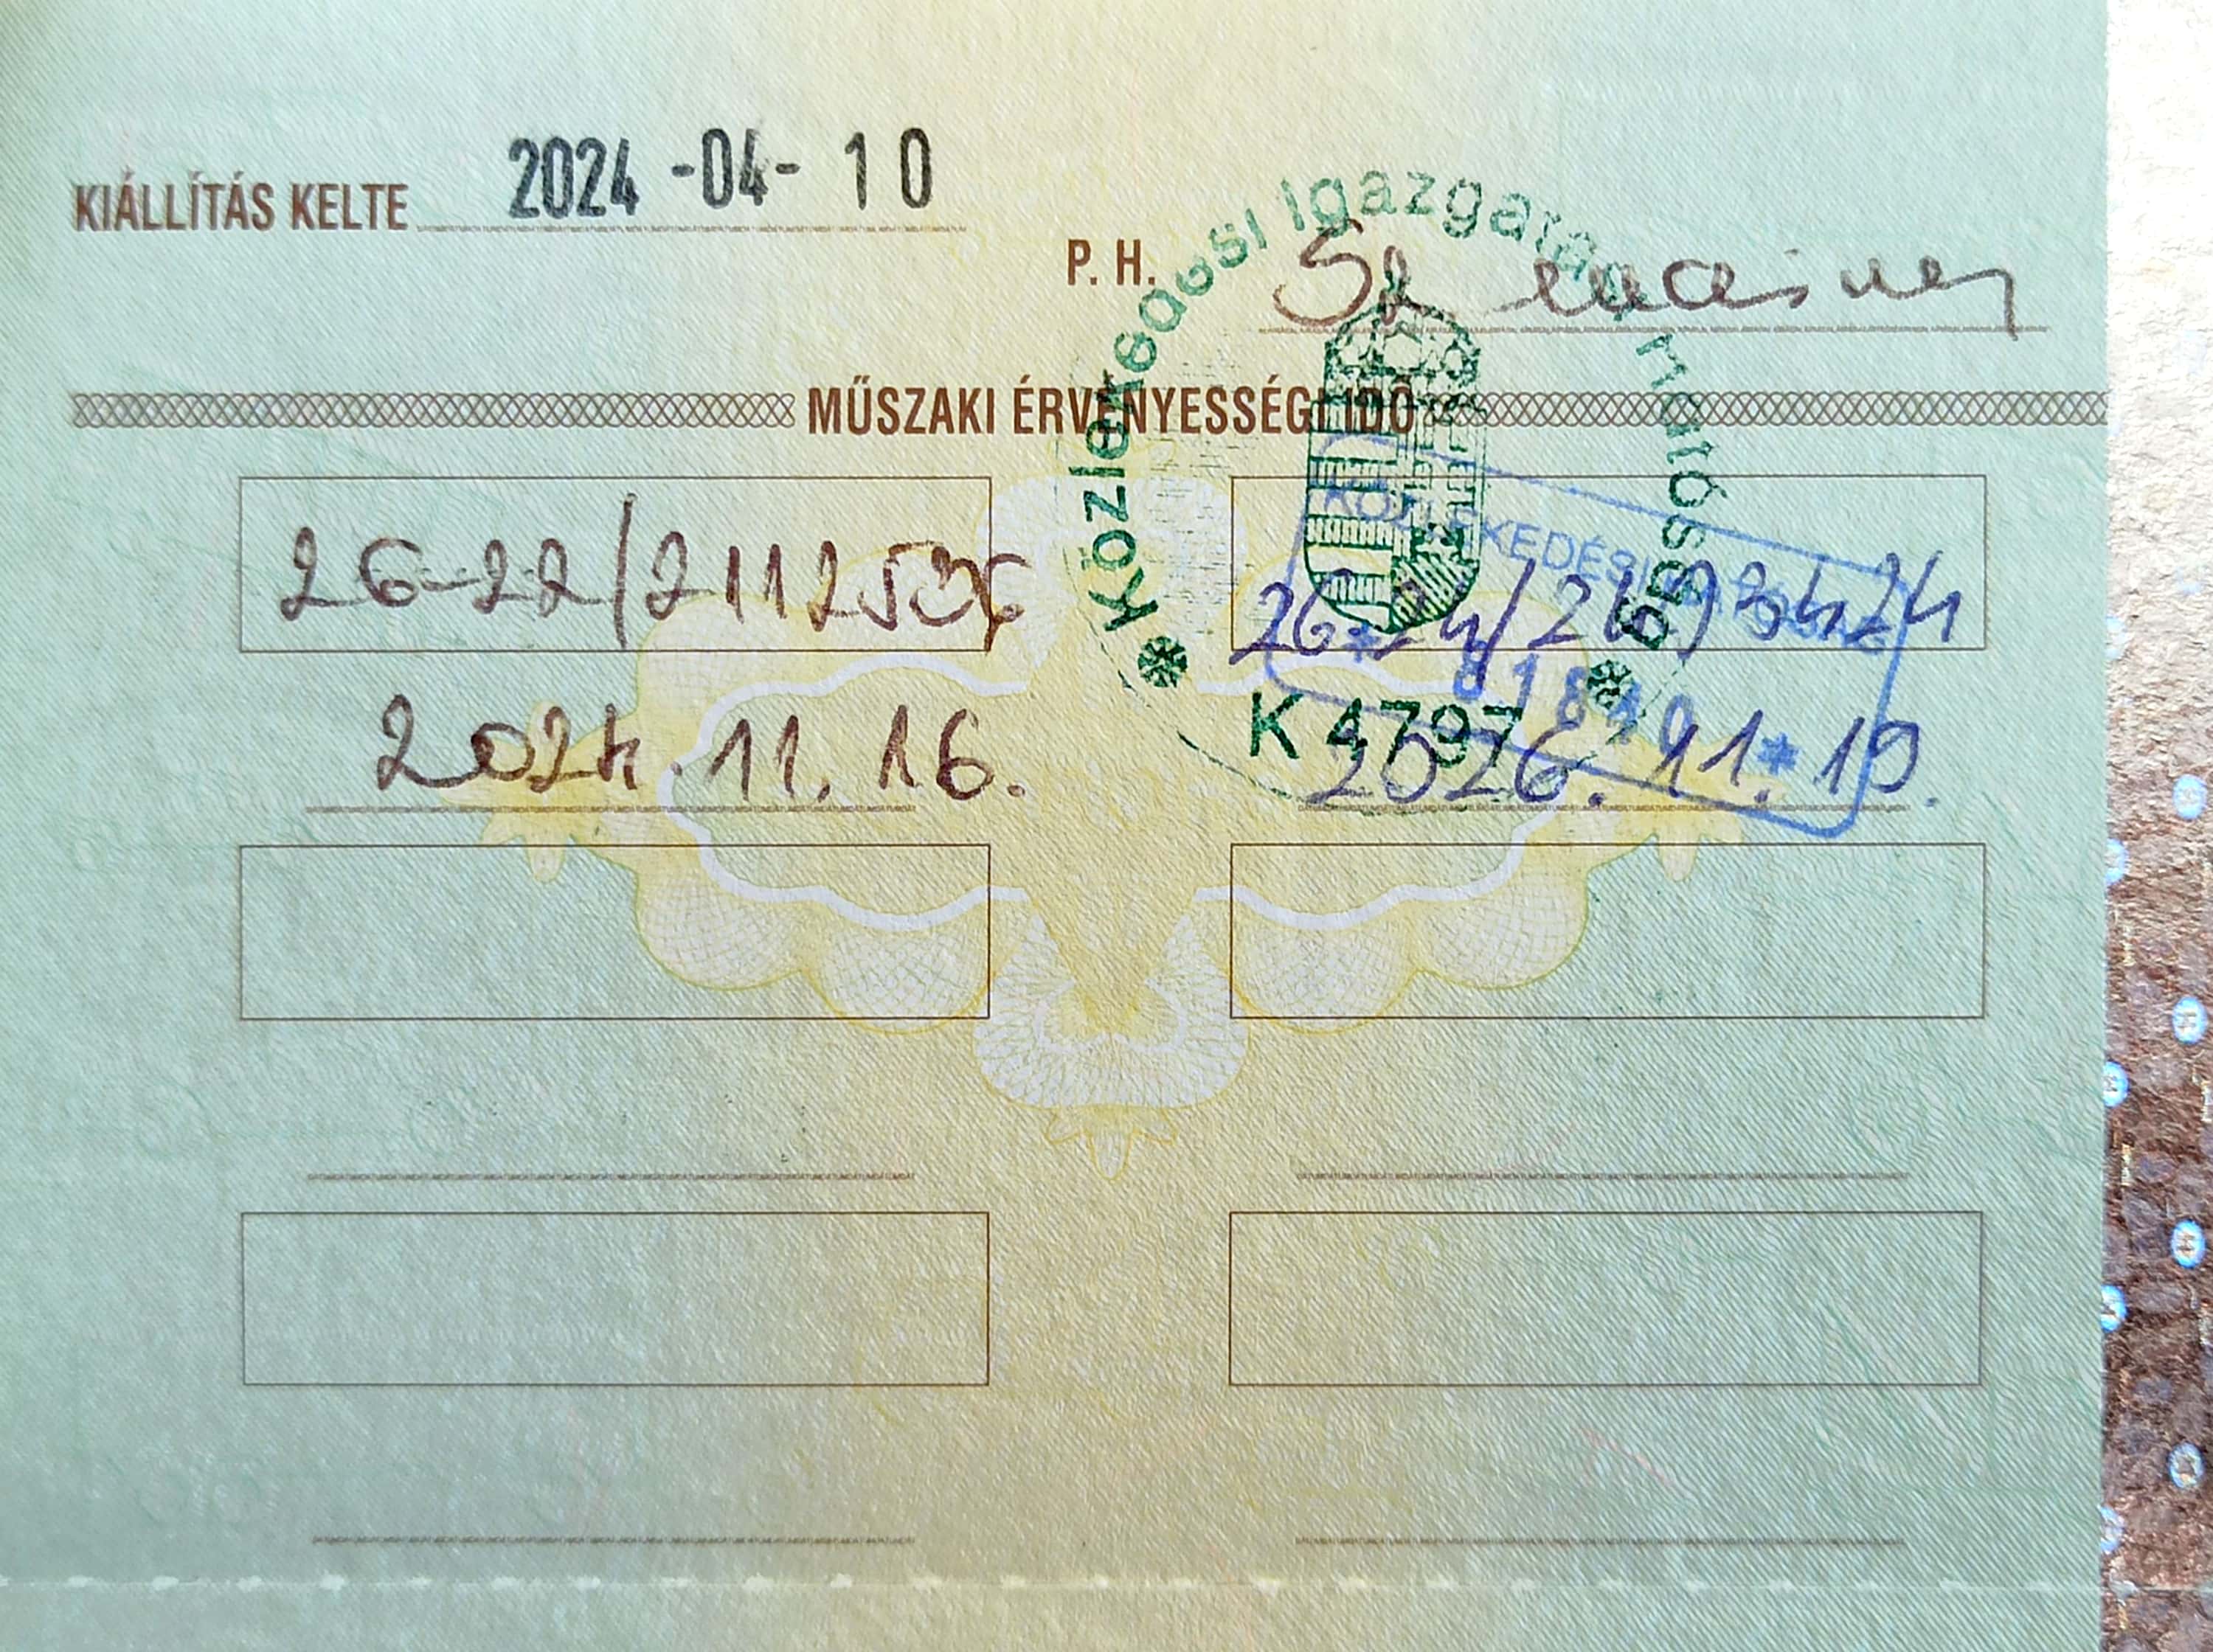 KIÁLLÍTÁS KELTE 2024 -04- 10
P. H.
Közlekedési Igazgatási
K 4797
MŰSZAKI ÉRVÉNYESSÉGI IDŐ
26-22/2112536
2024.11.16.
KÖZLEKEDÉSI
2026.11.19.